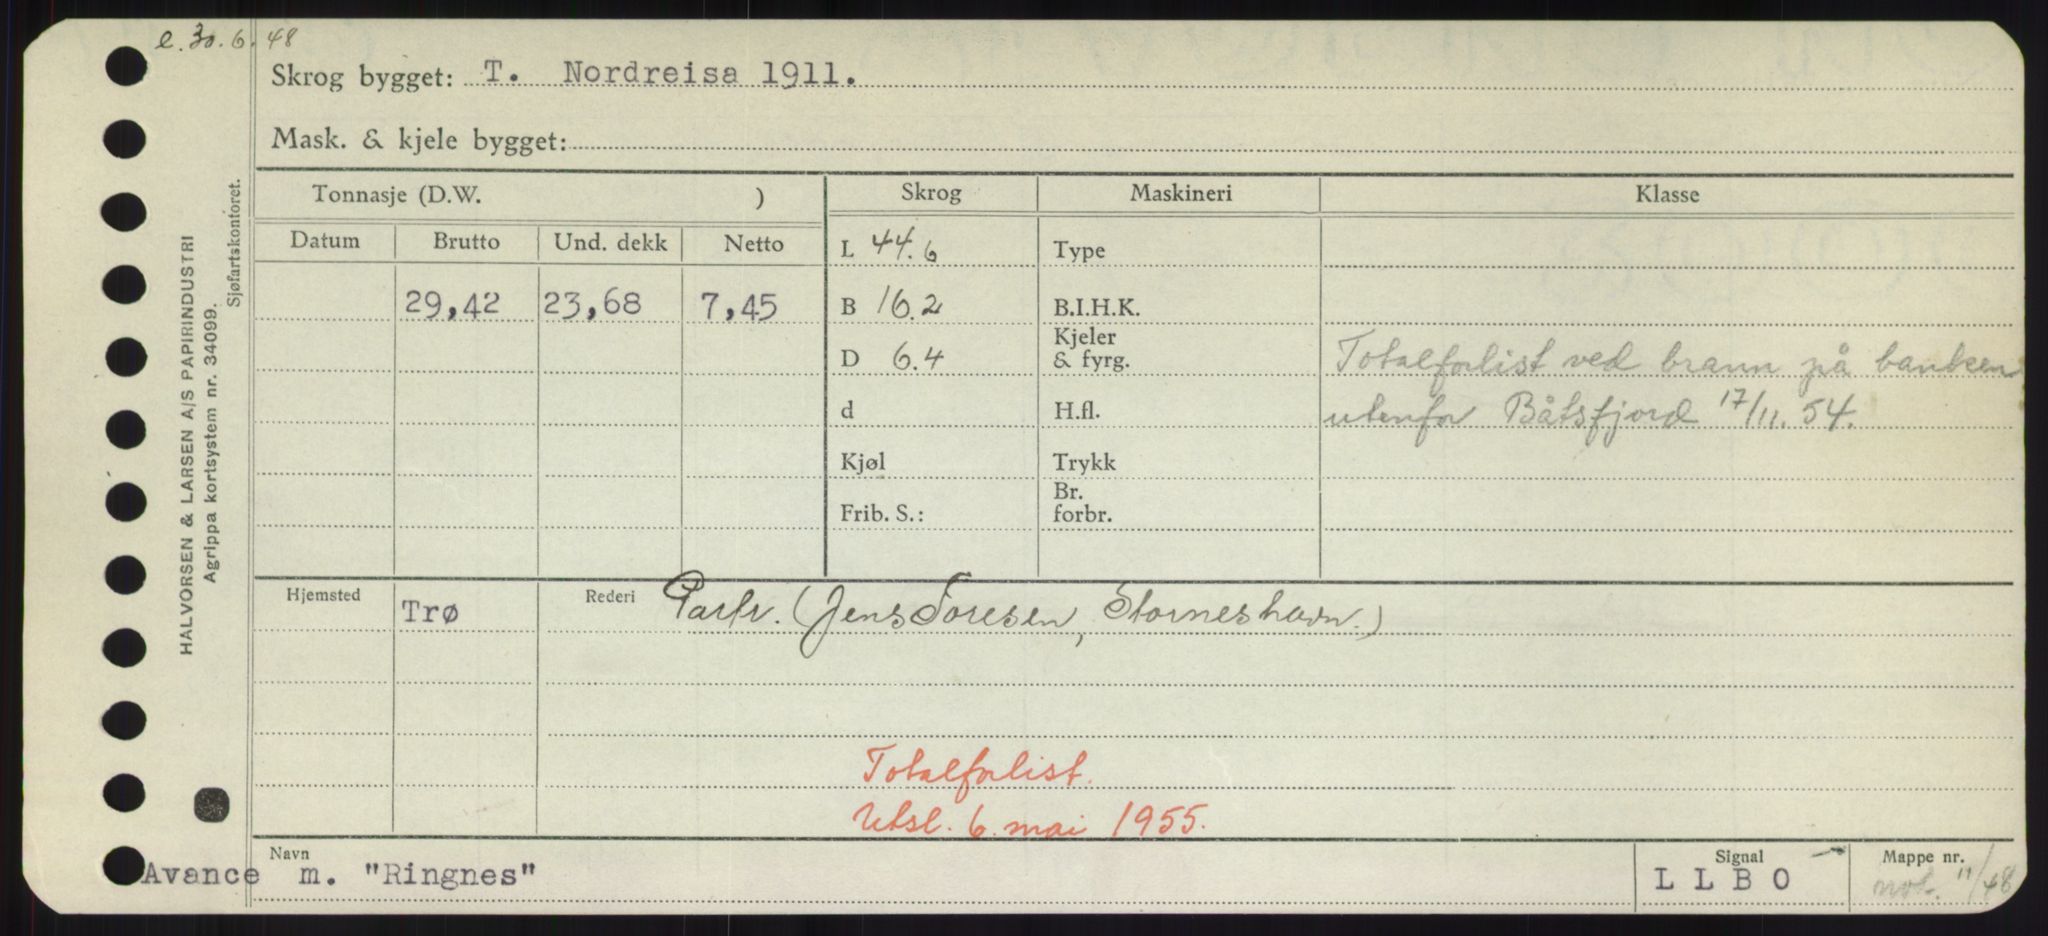 e. 30.6.48
Skrog bygget: T. Nordreisa 1911.
Mask. & kjele bygget:
HALVORSEN & LARSEN A/S PAPIRINDUSTRI
Agrippa kortsystem nr. 34099.
Sjøfartskontoret.
Tonnasje (D.W. ) Skrog Maskineri Klasse
Datum Brutto Und. dekk Netto L 44.6 Type
29,42 23,68 7,45 B 16.2 B.I.H.K.
D 6.4 Kjeler & fyrg. Totalforlist ved brann på banken
d H.fl. utenfor Båtsfjord 17/11. 54.
Kjøl Trykk
Frib. S.: Br. forbr.
Hjemsted Trø Rederi Partr. (Jens Toresen, Storneshavn.)
Totalforlist.
Utsl. 6. mai 1955.
Navn Signal Mappe nr.
Avance m. "Ringnes" L L B O not. 11/48